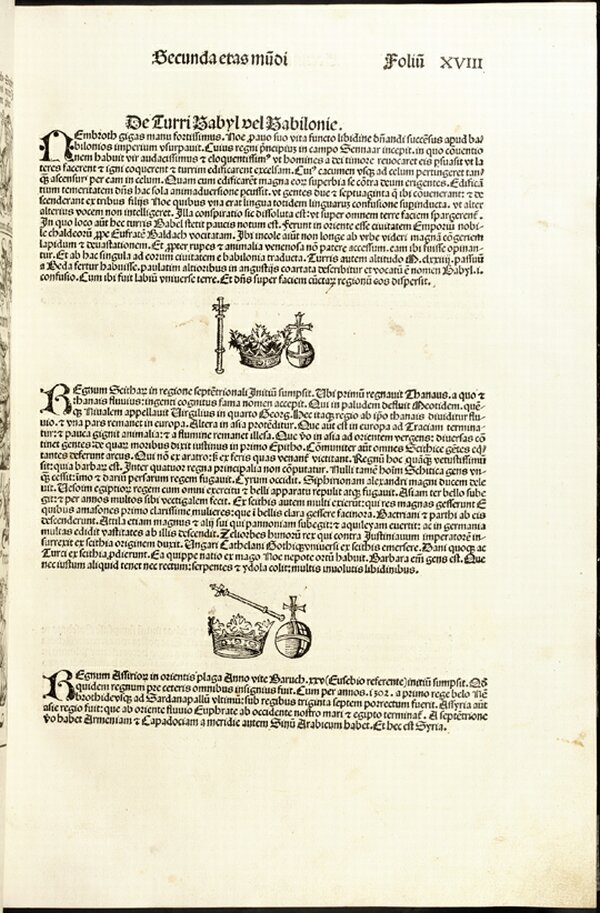 Secunda etas mũdi Foliũ XVIII
De Turri Babyl vel Babilonie.
NEmbroth gigas manu fortissimus. Noe ꝓauo suo vita functo libidine dñandi succẽsus apud ba-
bilonios imperium vsurpauit. Cuius regni pͥncipius in campo Sennaar incepit. in quo cõuentio
nem habuit vir audacissimus & eloquentissimꝰ vt homines a dei timore reuocaret eis ꝑsuasit vt la
teres facerent & igni coquerent & turrim edificarent excelsam. Cuiꝰ cacumen vsqꝫ ad celum pertingeret tanͣ
qꝫ ascensuri per eam in celum. Quam cum edificarẽt magna cor superbia se cõtra deum erigentes. Edifica
tium temeritatem dñs hac sola animaduersione peussit. vt gentes due & septuaginta q̃ ibi cõuenerant: & de
scenderant ex tribus filijs Noe quibus vna erat lingua totidem linguarũ confusione supinducta. vt alter
alterius vocem non intelligeret. Illa conspiratio sic dissoluta est: vt super omnem terre faciem spargerenͭ.
In quo loco aũt hec turris Babel steteͥ paucis notum est. Ferunt in oriente esse ciuitatem Emporiũ nobi-
le chaldeorũ, ꝓpe Eufratẽ Baldach vocitatam. Ibi incole aiũt non longe ab vrbe videri magnã cõgeriem
lapidum & deuastationem. Et ꝓpter rupes & animalia venenosa nõ patere accessum. eam ibi fuisse opinan-
tur. Et ab hac singula ad eorum ciuitatem e babilonia traducta. Turris autem altitudo M.clxxiiij. passuũ
a Beda fertur habuisse. paulatim altioribus in angustijs coartata describitur et vocatũ ẽ nomen Babyl. i.
confusio. Cum ibi fuit labiũ vniuerse terre. Et dñs super faciem cũctarꝫ regionũ eos dispersit.
REgnum Scitharꝫ in regione septẽtrionali Initiũ sumpsit. Ubi primũ regnauit Thanaus. a quo &
thanais fluuius: ingenti cognitus fama nomen accepit. Qui in paludem defluit Meotidem. quẽ-
qꝫ Niualem appellauit Uirgilius in quarto Georg. Hec itaqꝫ regio ab ip̃o thanais diuiditur flu-
uio. & vna pars remanet in europa. Altera in asia protẽditur. Que aũt est in europa ad Traciam termina-
tur: & pauca gignit animalia: & a flumine remanet illesa. Que vo in asia ad orientem vergens: diuersas cõ
tinet gentes de quarꝫ moribus dixit iustinus in primo Epitho. Cõmuniter aũt omnes Scithice gẽtes cẽ
tantes deserunt arcus. Qui nõ ex aratro: sꝫ ex feris quas venanͭ victitant. Regnũ hoc quãqꝫ venustissimũ
sit: quia barbarꝫ est. Inter quatuor regna principalia non cõputatur. Nulli tamẽ hoĩm Schitica gens vn-
qꝫ cessit: imo & dariũ persarum regem fugauit. Cyrum occidit. Siphirionam alexandri magni ducem dele
uit. Uesoim egiptiorꝫ regem cum omni exercitu & belli apparatu repulit atqꝫ fugauit. Asiam ter bello sube
git: & per annos multos sibi vectigalem fecit. Ex scithis autem multi exierũt: qui res magnas gesserunt E
quibus amasones primo clarissime mulieres: que i bellis clara gessere facinora. Bactriani & parthi ab eis
descenderunt. Attila etiam magnus & alij sui qui pannoniam subegit: & aquileyam euertit: ac in germania
multas edidit vastitates ab illis descendit. Zeliorbes hunorũ rex qui contra Justinianum imperatorẽ in-
surrexit ex scithia originem duxit. Ungari Cathelani Gothiqꝫ vniuersi ex scithis emersere. Dani quoqꝫ ac
Turci ex scithia ꝓdierunt. Ea quippe natio ex mago Noe nepote ortũ habuit. Barbara em̃ gens est. Que
nec iustum aliquid tenet nec rectum: serpentes & ydola colit: multis inuolutis libidinibus.
REgnum Assiriorꝫ in orientis plaga Anno vite Saruch. xxv (Eusebio referente) initiũ sumpsit. Qđ
quidem regnum pre ceteris omnibus insignius fuit. Cum per annos. 1302. a primo rege belo Nẽ
brothide vsqꝫ ad Sardanapallũ vltimũ: sub regibus triginta septem porrectum fuerit. Assyria aũt
asie regio fuit: que ab oriente fluuio Euphrate ab occidente nostro mari & egipto terminaͭ. A septẽtrione
vo habet Armeniam & Capadociam a meridie autem Sinũ Arabicum habet. Et hec est Syria.